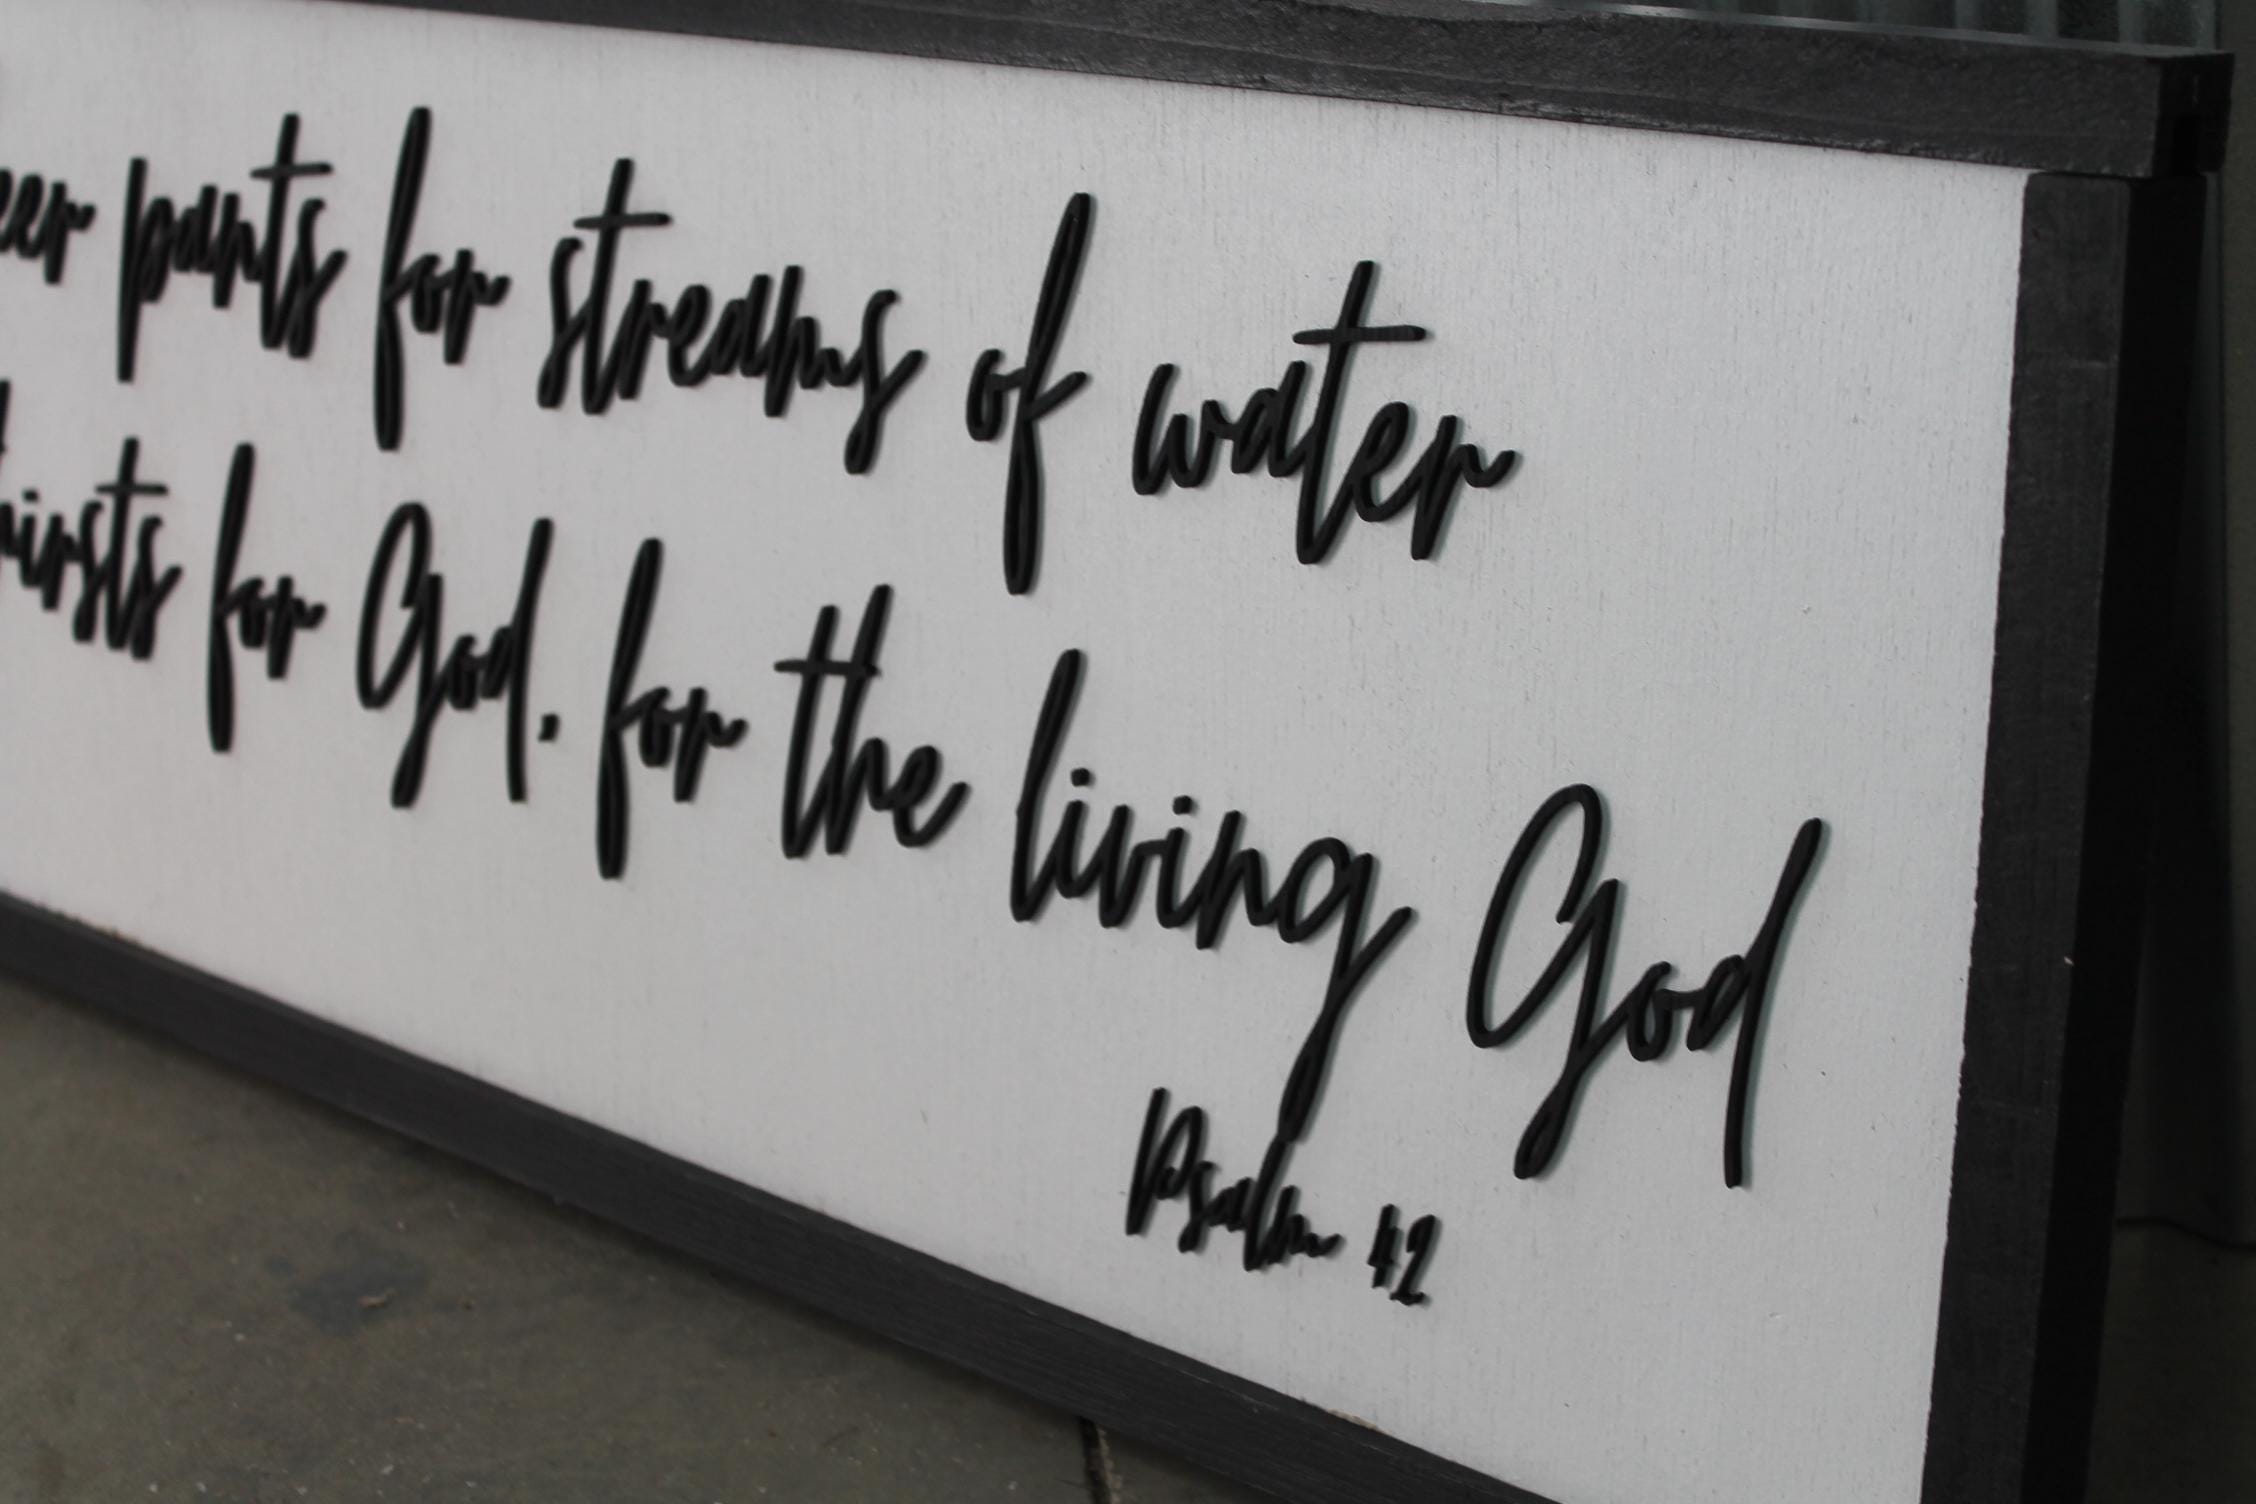 eer pants for streams of water
hirsts for God, for the living God
Psalm 42